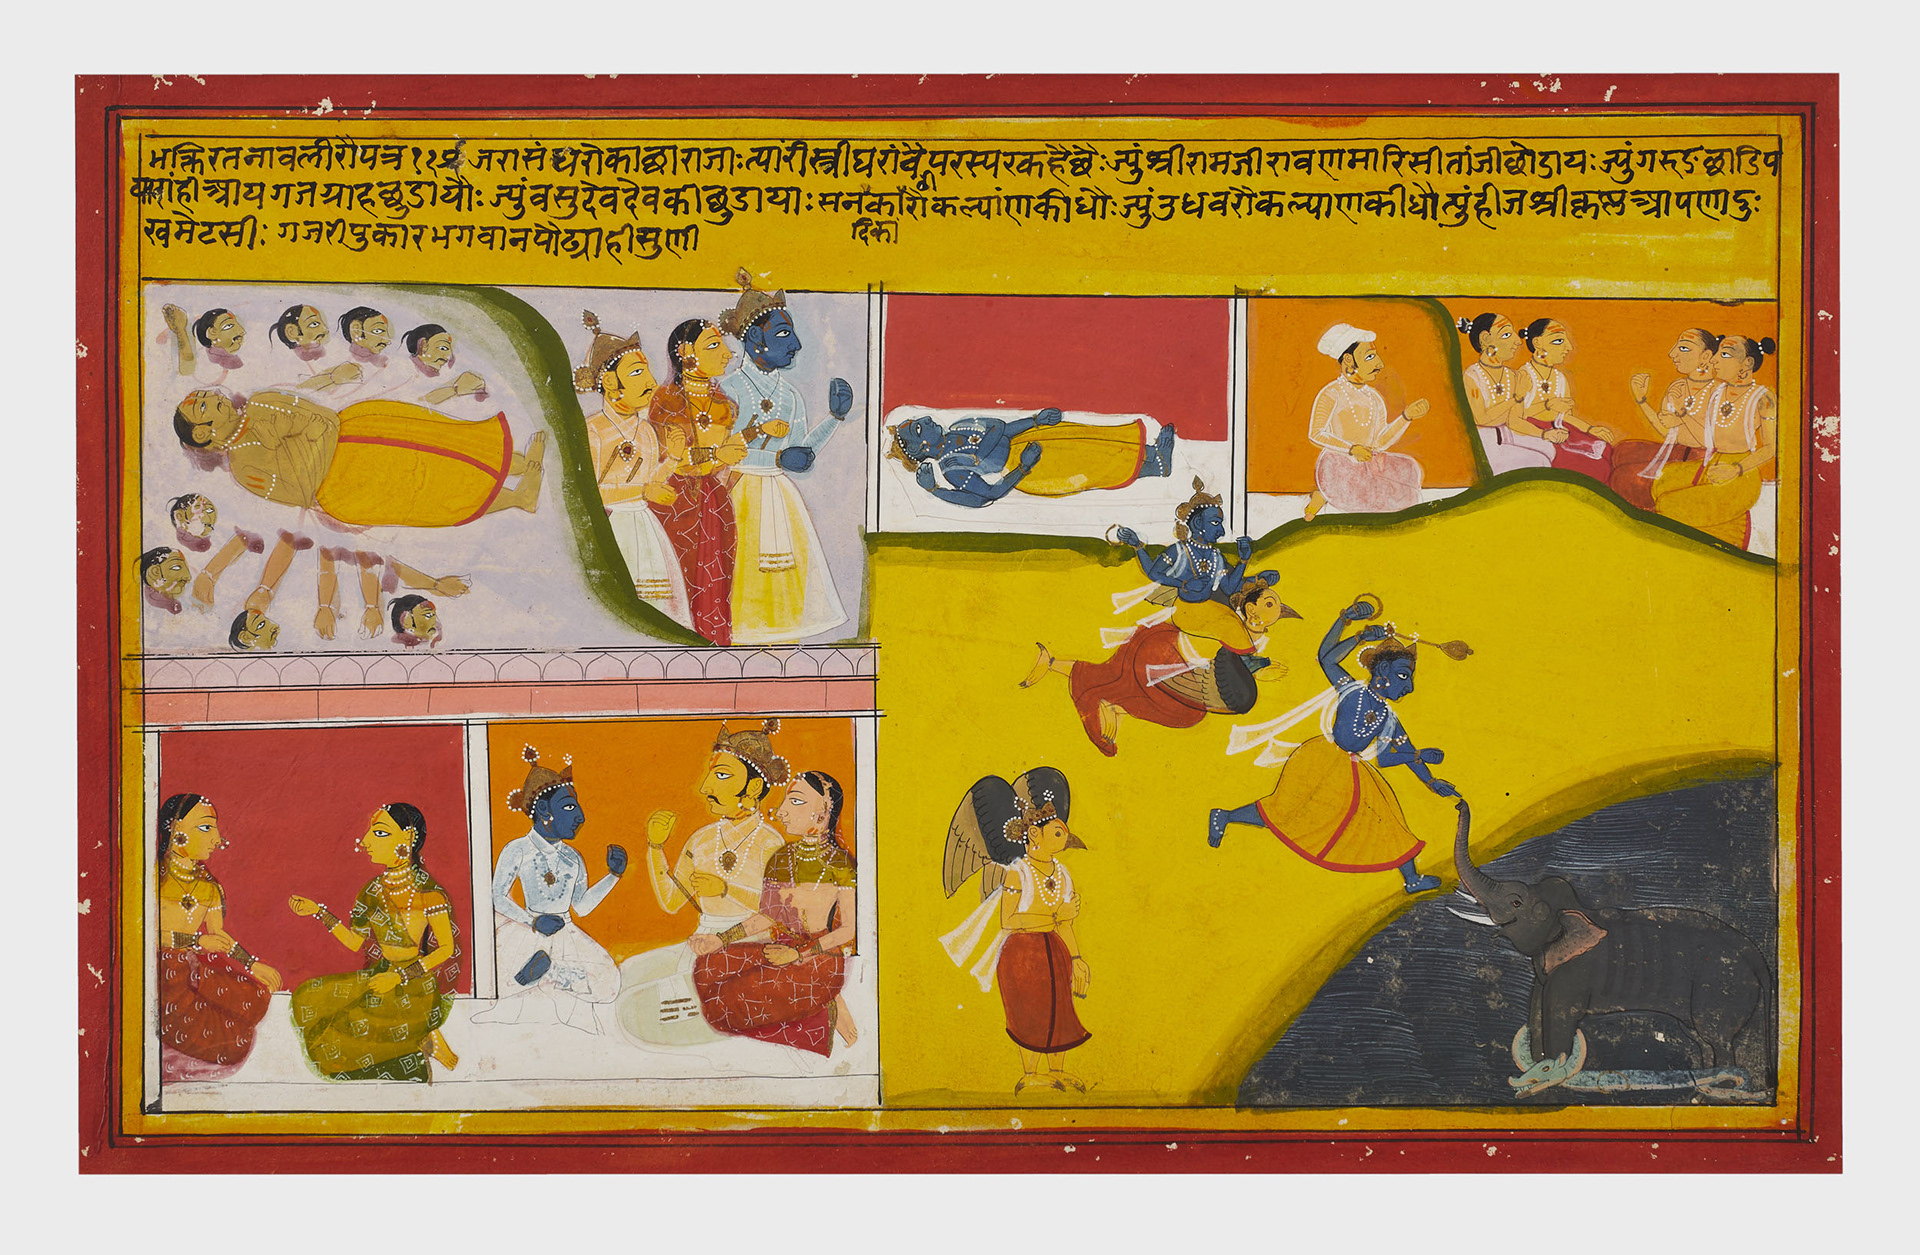 भक्तिरतनावलीरौपत्र११९ जरासंधरोकाछाराजाः त्यांरीस्त्रीघरांवैपरस्परकहैछैः ज्युंश्रीरामजीरावणमारिसीतांजीछोडायः ज्युंगरुडछाडिप
यादांहीआयगजग्राहछुडायौः ज्युंवसुदेवदेवकीछुडायाः सनकादिकांरौकल्यांणकीधौः ज्युंउधवरौकल्याणकीधौ त्युंहीजश्रीकृष्णआपणादुः
खमेटसीः गजरीपुकारभगवानपौढ्याहीसुणी